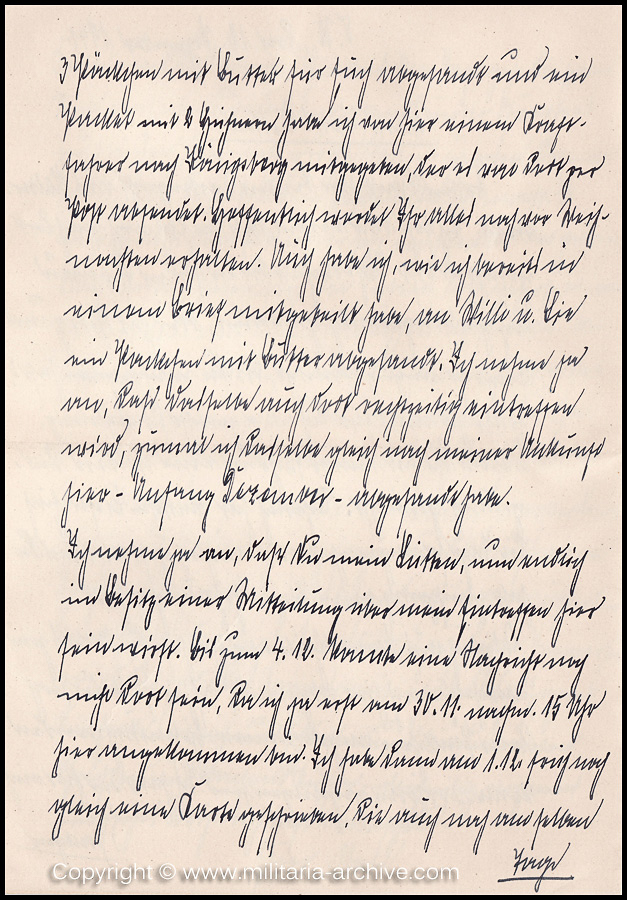 3 Päckchen mit Butter für Euch abgesandt und ein
Packet mit 2 Hühnern habe ich von hier einem Kraft-
fahrer nach Königsberg mitgegeben, der es von dort per
Post absendet. Hoffentlich werdet Ihr Alles noch vor Weih-
nachten erhalten. Auch habe ich, wie ich bereits in
einem Brief mitgeteilt habe, an Willi u.
ein Päckchen mit Butter abgesandt. Ich nehme ja
an, daß dasselbe auch dort rechtzeitig eintreffen
wird, zumal ich dasselbe gleich nach meiner Ankunft
hier - Anfang Dezember - abgesandt habe.
Ich nehme ja an, daß Du mein, nun endlich
im Besitz einer Mitteilung über mein Eintreffen hier
sein wirst. Bis zum 4.12. konnte eine Nachricht noch
nicht dort sein, da ich ja erst am 30.11. nachm. 15 Uhr
hier angekommen bin. Ich habe dann am 1.12. früh noch
gleich eine Karte geschrieben, die auch noch am selben
Tage
Copyright © www.militaria-archive.com